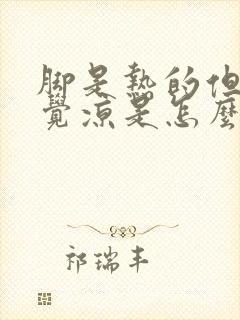 脚是热的但
觉凉是怎麽
祁瑞丰